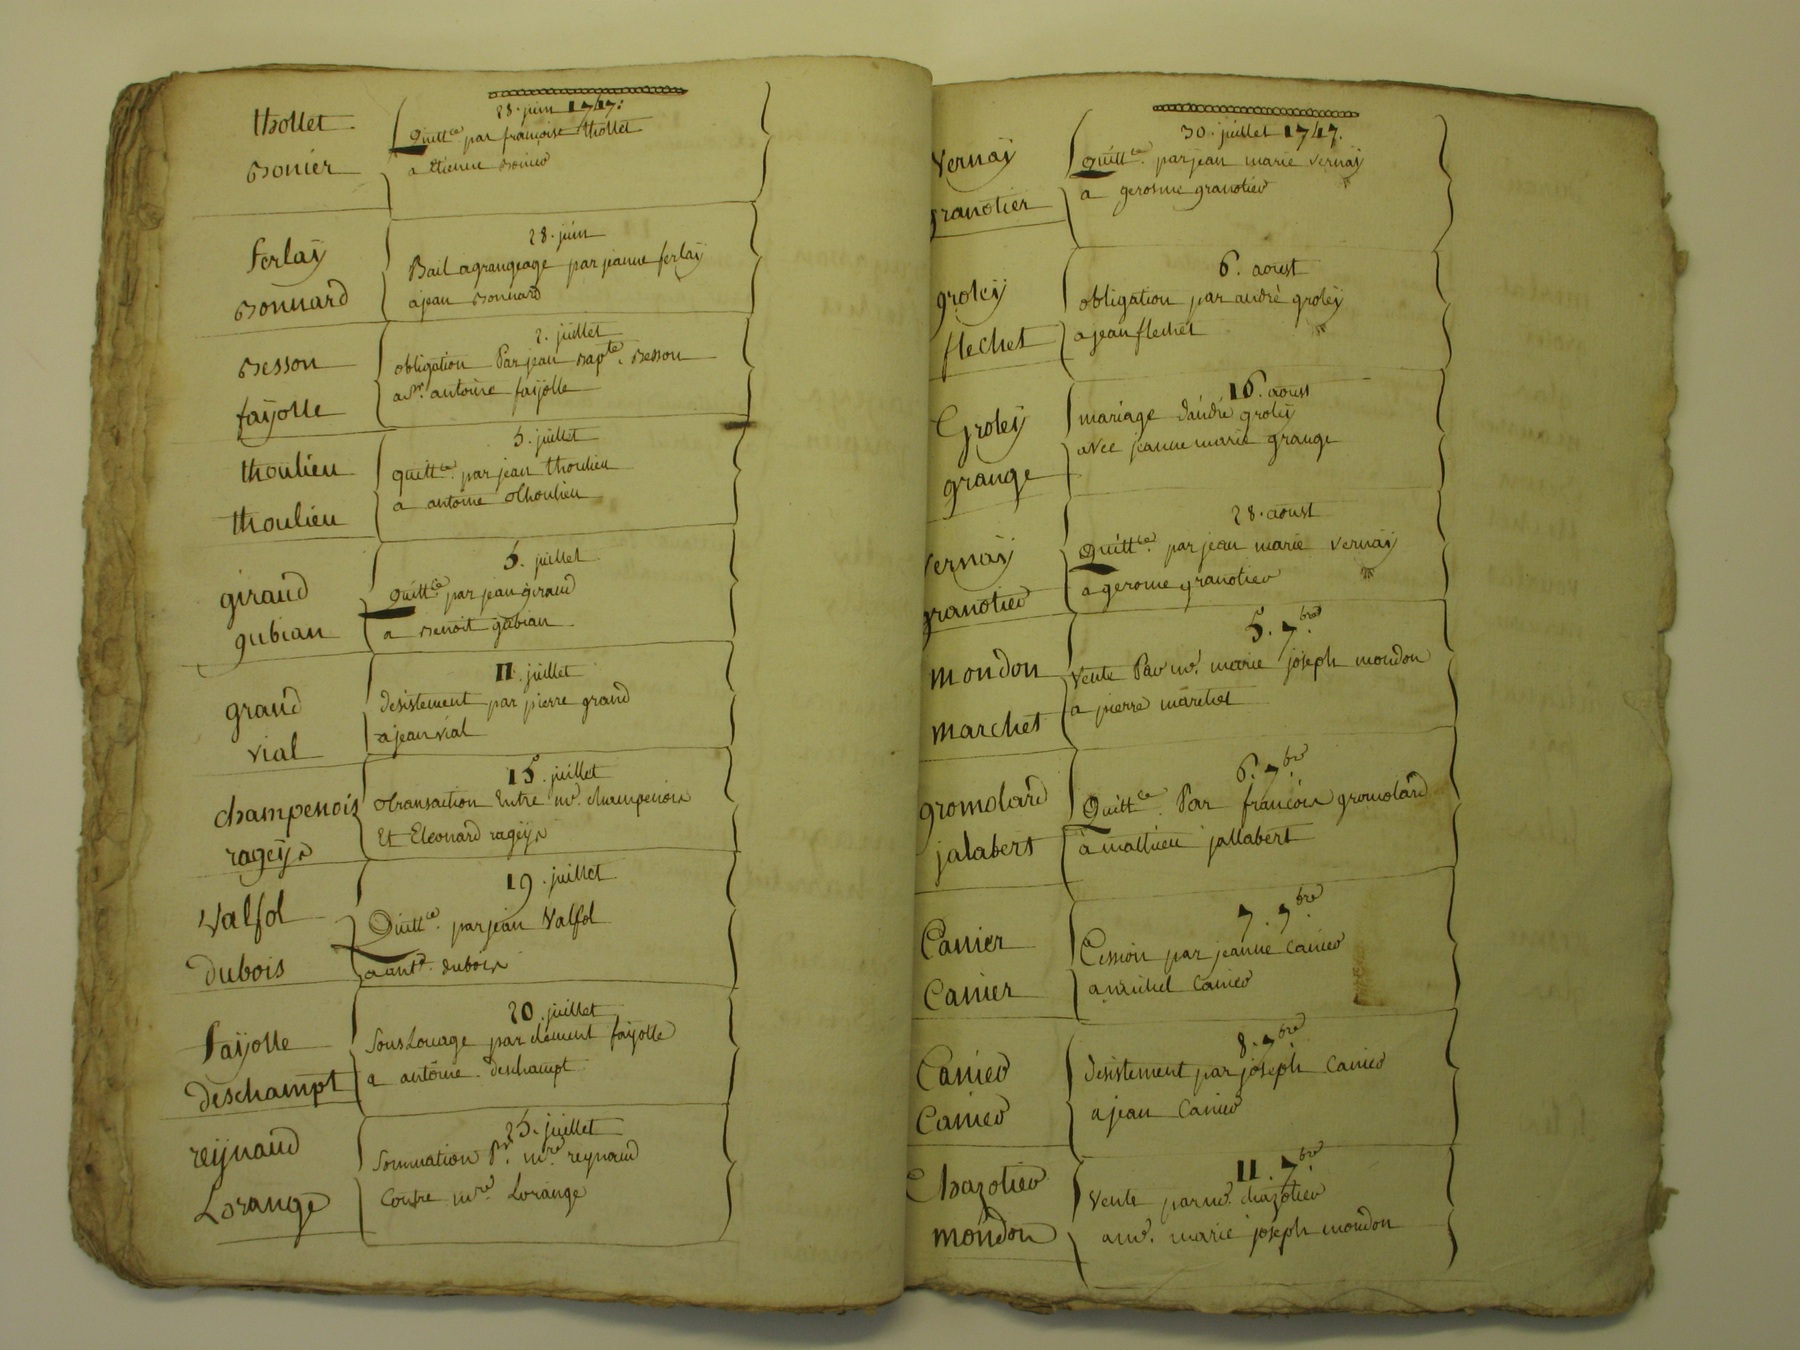 28. juin 1747:
thollet
Quitt.ce par françoise thollet
Bonier
a Etienne Bonier
28. juin
ferlaÿ
Bail agrangeage par jeanne ferlaÿ
Bonnard
a jean Bonnard
2. juillet
Besson
obligation Par jean Bapte. Besson
faÿolle
a Sr. antoine faÿolle
5. juillet
thoulieu
quitt.ce par jean thoulieu
thoulieu
a antoine thoulieu
5. juillet
giraud
quitt.ce par jean giraud
gubian
a Benoit gubian
11. juillet
grand
desistement par pierre grand
vial
a jean vial
15. juillet
champenois
transaction Entre mr. champenois
rageÿs
Et Eleonard rageÿs
19. juillet
Valfol
Quitt.ce par jean Valfol
dubois
a ant.e dubois
20. juillet
faÿolle
Sous Louage par clement faÿolle
deschampt
a antoine deschampt
25. juillet
reÿnaud
Sommation Pr. mre. reynaud
Lorange
Contre mre. Lorange
30. juillet 1747.
Vernaÿ
Quitt.ce par jean marie vernaÿ
granotier
a gerosme granotier
6. aoust
groleÿ
obligation par andré groleÿ
flechet
a jean flechet
16. aoust
Groleÿ
mariage d'andré groleÿ
grange
avec jeanne marie grange
28. aoust
Vernaÿ
Quitt.ce par jean marie vernaÿ
granotier
a gerome granotier
5. 7bre.
mondon
vente Par mr. marie joseph mondon
marchet
a pierre marchet
6. 7bre
gromolard
Quitt.ce Par françois gromolard
jalabert
à mathieu jallabert
7. 7bre.
Canier
Cession par jeanne Canier
Canier
a michel Canier
8. 7bre.
Canier
desistement par joseph Canier
Canier
a jean Canier
11. 7bre
Chazotier
vente par mr. chazotier
mondon
a mr. marie joseph mondon